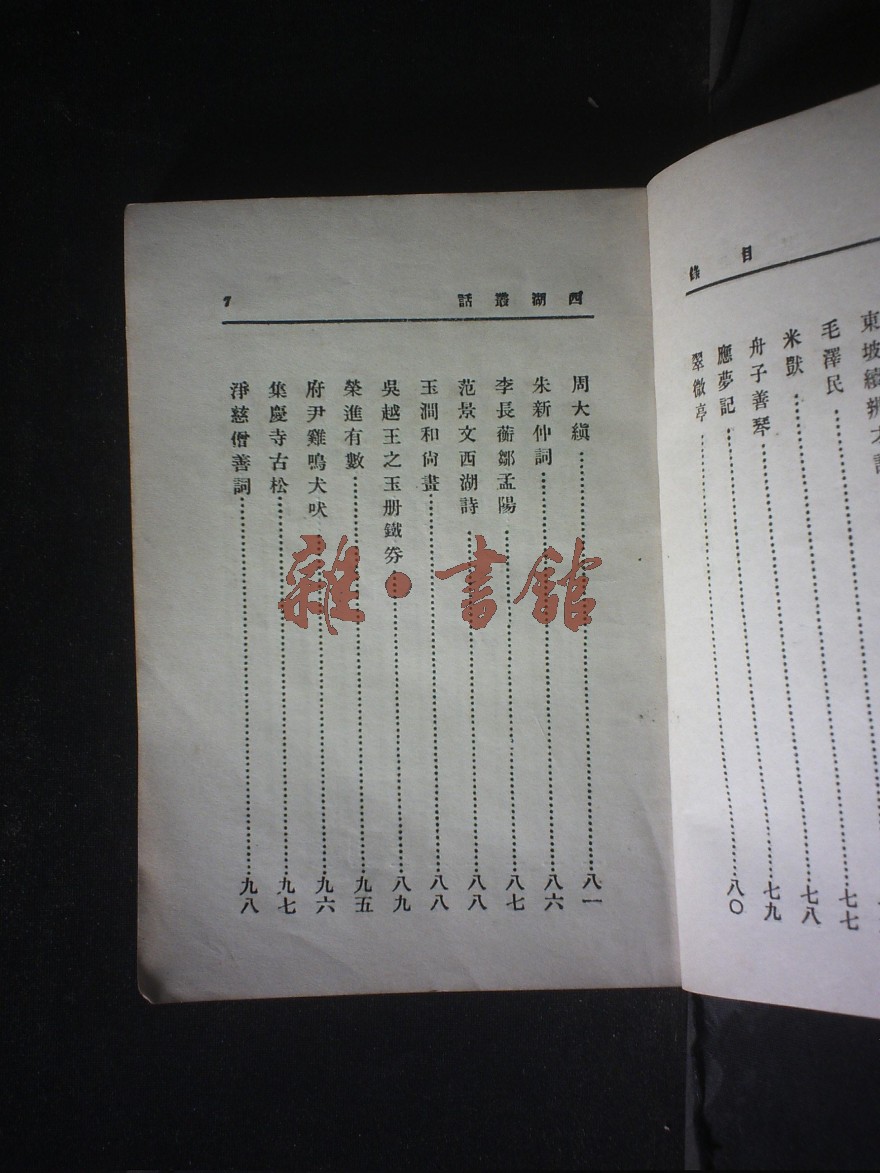 目錄
毛澤民……七七
米獃……七八
舟子善琴……七九
應夢記……八〇
翠微亭
西湖叢話 7
周大縝……八一
朱新仲詞……八六
李長蘅鄒孟陽……八七
范景文西湖詩……八八
玉澗和尙畫……八八
吳越王之玉册鐵券……八九
榮進有數……九五
府尹雞鳴犬吠……九六
集慶寺古松……九七
淨慈僧善詞……九八
雜·書館